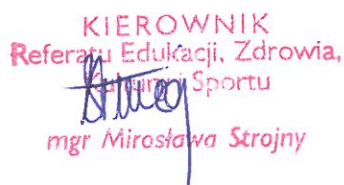 KIEROWNIK
Referatu Edukacji, Zdrowia,
Kultury i Sportu
mgr Mirosława Strojny